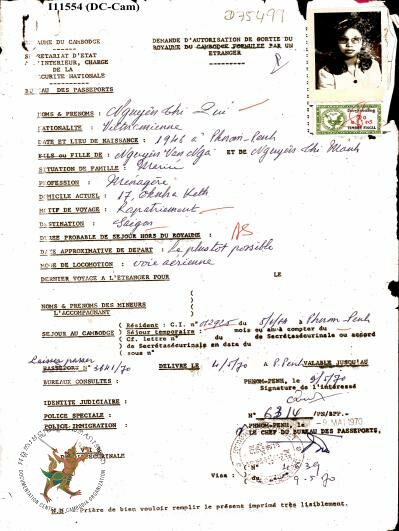 111554 (DC-Cam)
D75499
ROYAUME DU CAMBODGE
DEMANDE D'AUTORISATION DE SORTIE DU
ROYAUME DU CAMBODGE FORMULEE PAR UN
ETRANGER
SECRETARIAT D'ETAT
A L'INTERIEUR, CHARGE
DE LA
SECURITE NATIONALE
BUREAU DES PASSEPORTS
NOMS & PRENOMS : Nguyên thi Qui
NATIONALITE : Vietnamienne
DATE ET LIEU DE NAISSANCE : 1946 à Phnom-Penh
FILS ou FILLE DE : Nguyên Van Nga ET DE Nguyên thi Manh
SITUATION DE FAMILLE :
PROFESSION : Ménagère
DOMICILE ACTUEL : 17,
MOTIF DE VOYAGE : Rapatriement
DESTINATION : Saigon
DUREE PROBABLE DE SEJOUR HORS DU ROYAUME : AS
DATE APPROXIMATIVE DE DEPART : le plustôt possible
MODE DE LOCOMOTION : voie aérienne
DERNIER VOYAGE A L'ETRANGER POUR LE
NOMS & PRENOMS DES MINEURS
L'ACCOMPANANT
SEJOUR AU CAMBODGE ( Résident : C.I. n° du à Phnom-Penh
( Séjour temporaire : mois ou an à compter du
( Cf. lettre n° du de Secrétasdeurinale ou accord
( de Secrétasdeurinale en date du
( sous n°
Laissez passer
PASSEPORT N° 3641/70 DELIVRE LE 4/5/70 A P.Penh VALABLE JUSQU'AU
BUREAUX CONSULTES : PHNOM-PENH, le 9/5/70
Signature de l'intéressé
IDENTITE JUDICIAIRE :
N° 6314 /PS/BPP.-
POLICE SPECIALE :
POLICE IMMIGRATION :
PHNOM-PENH, le - 9 MAI 1970
LE CHEF DU BUREAU DES PASSEPORTS,
(N°
Visa : (du 9.5.70
DOCUMENTATION CENTER OF CAMBODIA ORGANIZATION
N.B. Prière de bien vouloir remplir le présent imprimé très lisiblement.